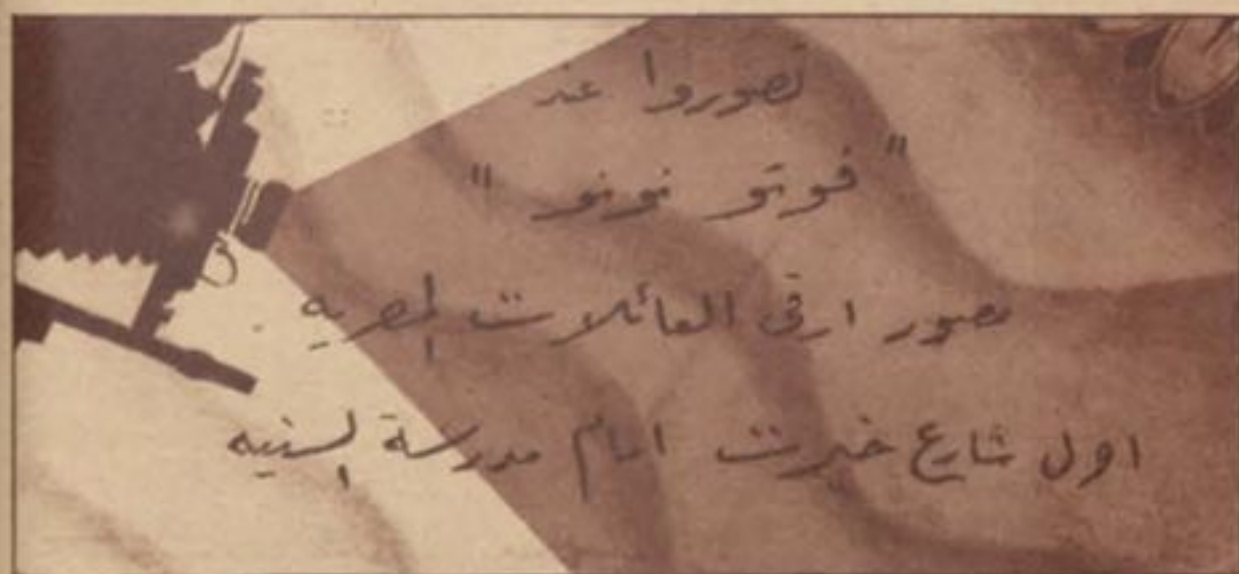 تصوروا عند
"فوتو نونو"
مصور ارقى العائلات المصريه
اول شارع خيرت امام مدرسة السنيه